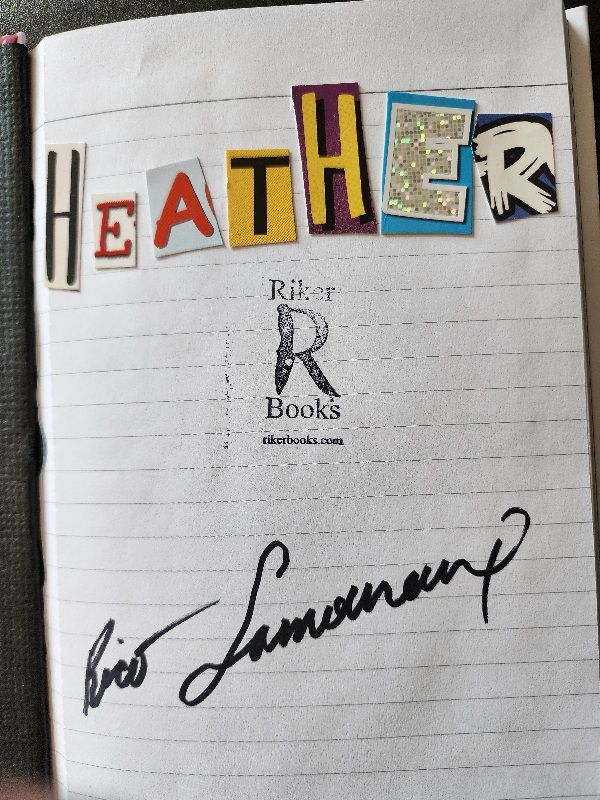 HEATHER
Riker
R
Books
rikerbooks.com
Rico Lamoureux